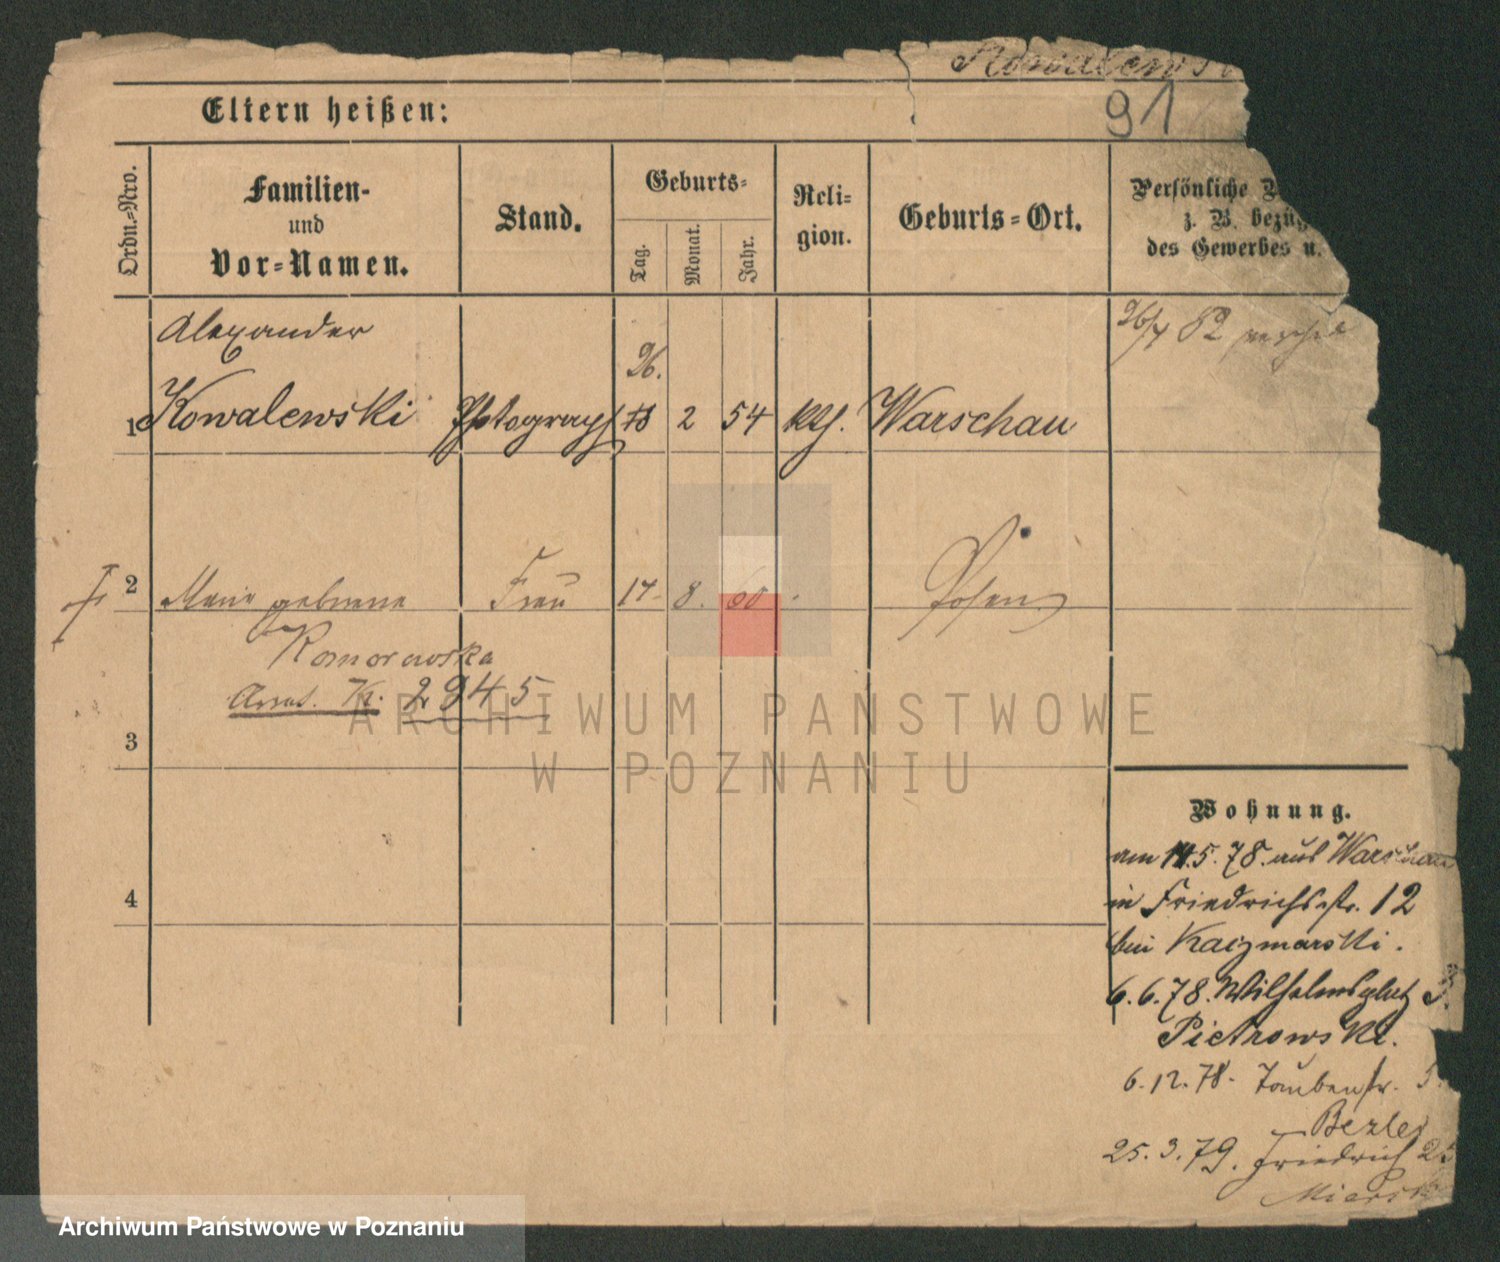 Kowalews
91
Eltern heißen:
Ordn.=Nro.
Familien-
und
Vor=Namen.
Stand.
Geburts=
Tag.
Monat.
Jahr.
Reli=
gion.
Geburts=Ort.
Persönliche
z. B. bezüg
des Gewerbes u.
Alexander
26.
1 Kowalewski Photograph 18 2 54 kth. Warschau
26/4 82
2 Marie geborene Frau 17. 8. 60 Posen
Komorowska
2945
3
4
Wohnung.
am 14.5.78. aus Warschau
in Friedrichsstr. 12
bei Kaczmarski.
6.6.78. Wilhelmsplatz 3.
Pietrowski.
6.12.78. Taubenstr. 5
25.3.79. Friedrich 25
ARCHIWUM PAŃSTWOWE
W POZNANIU
Archiwum Państwowe w Poznaniu